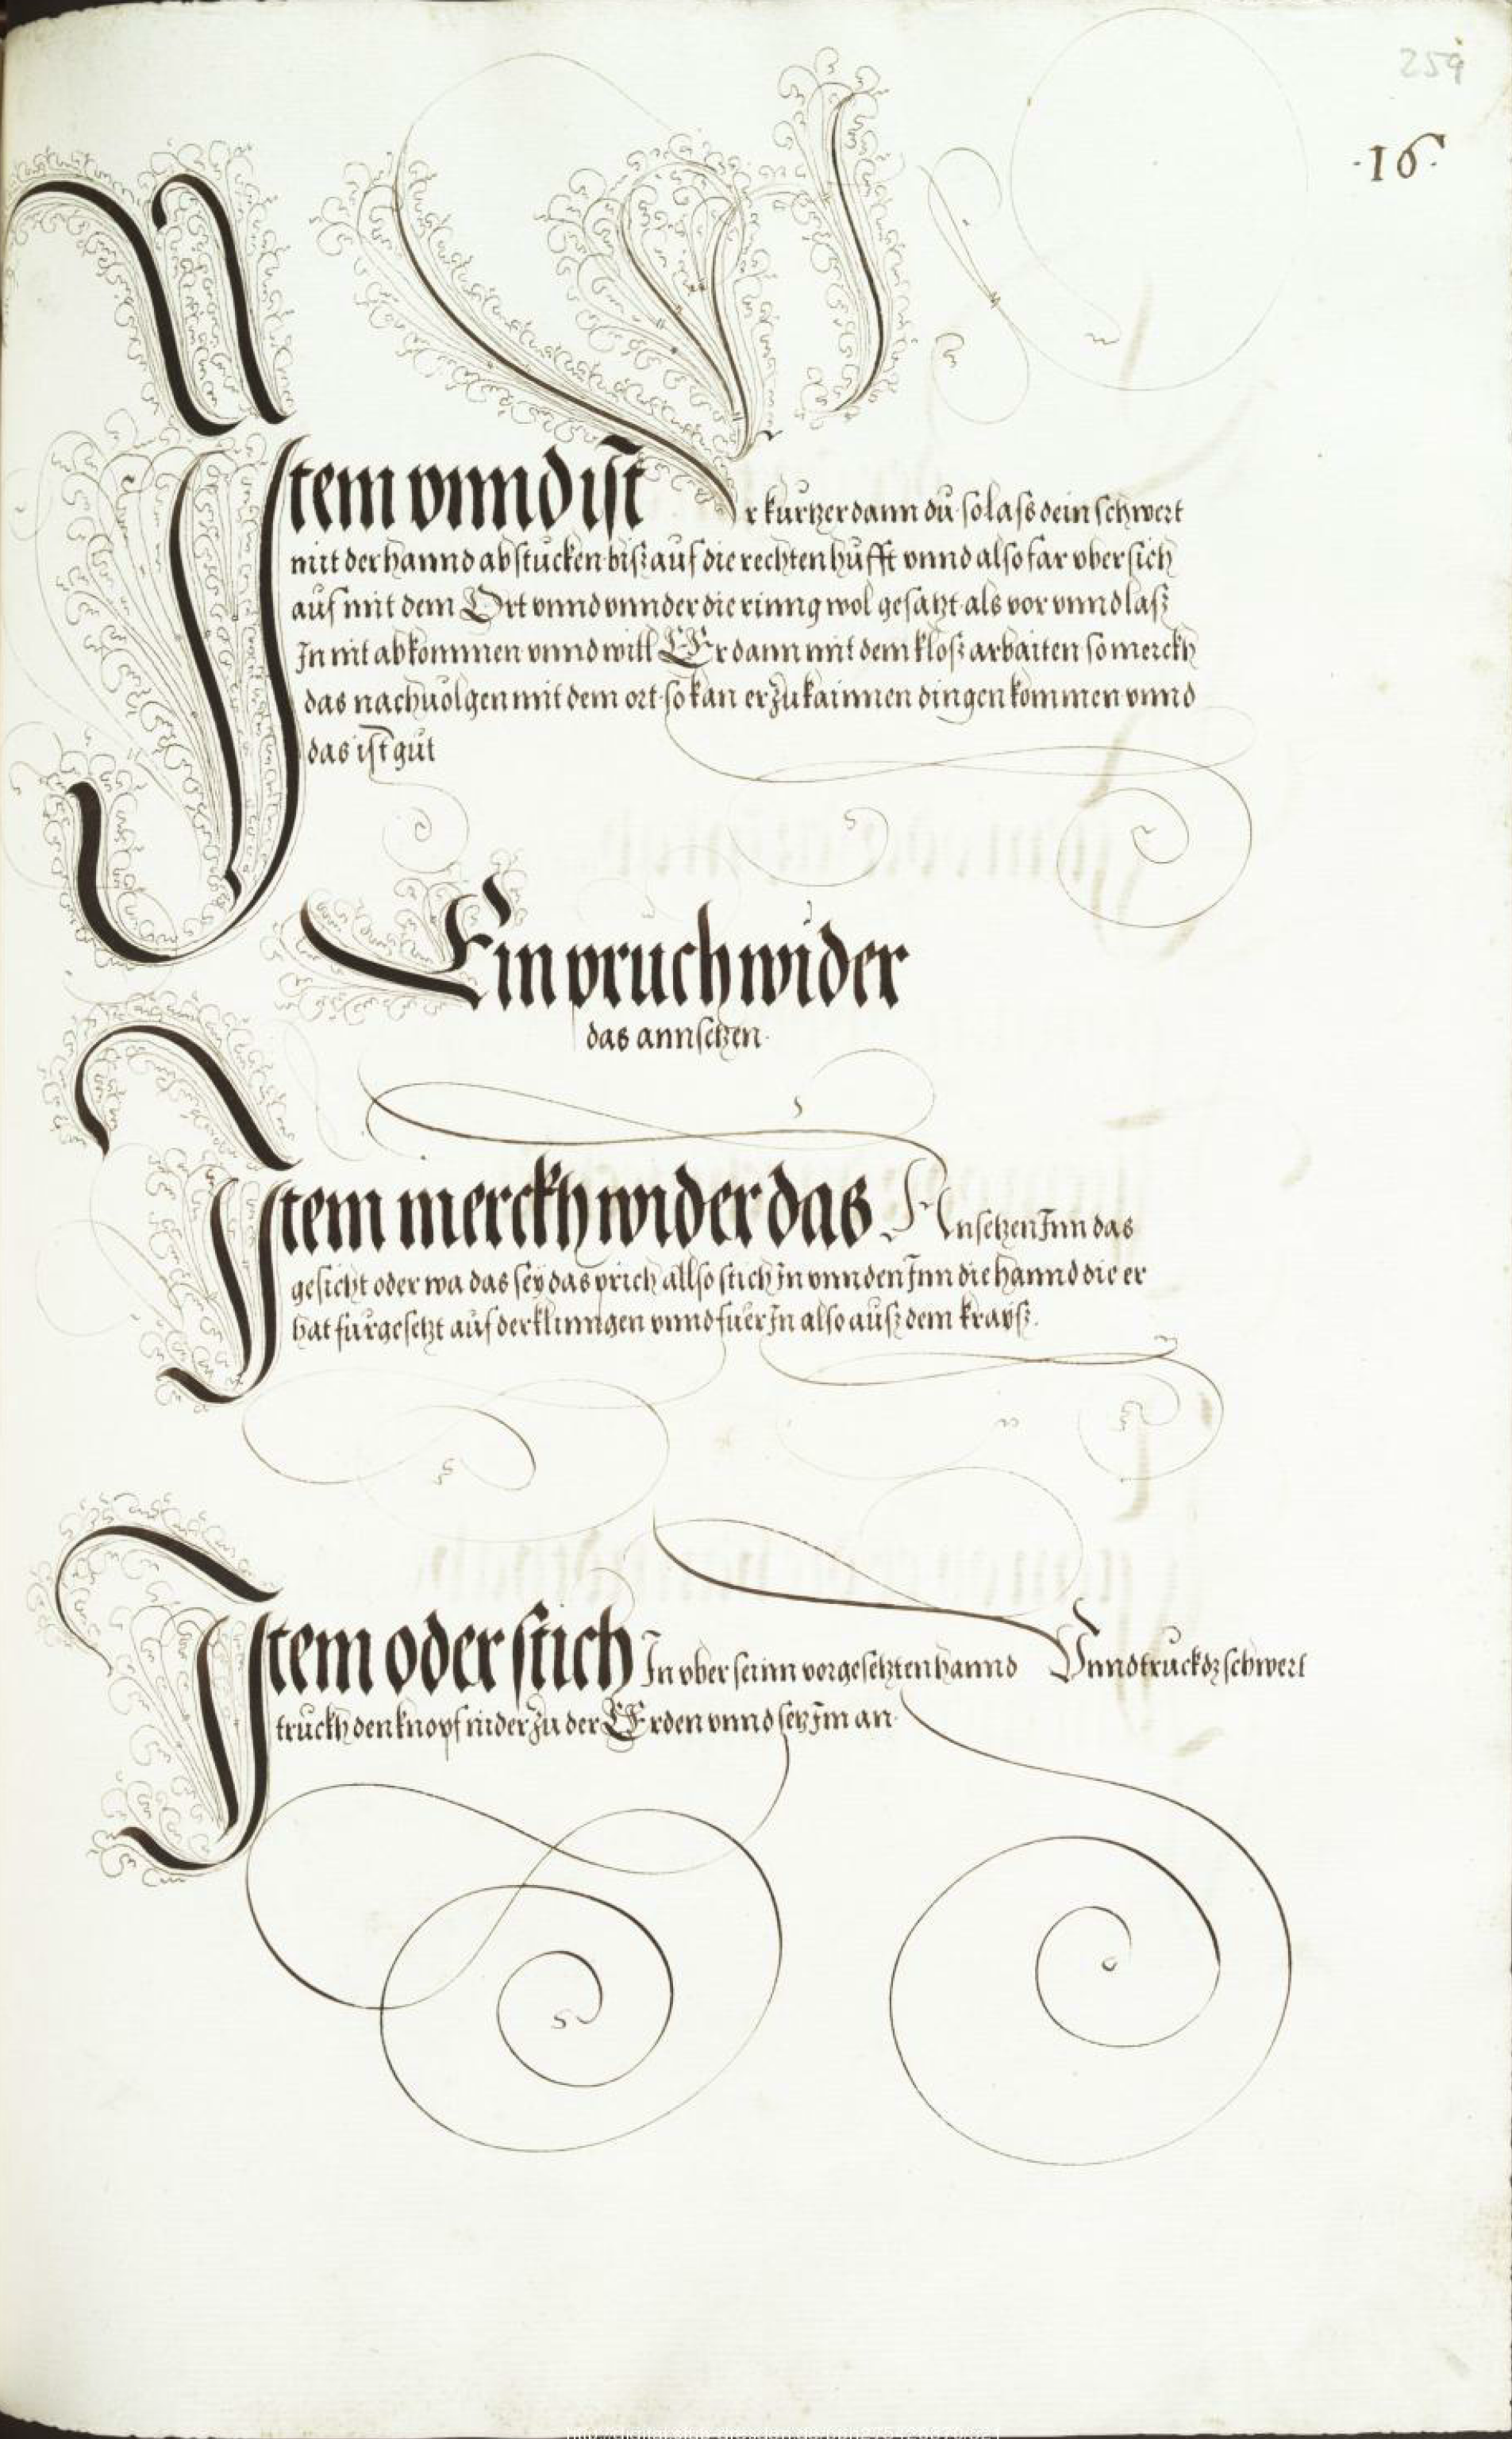 259
·16·
Item vnnd ist Er kurtzer dann du so lass dein schwert
mit der hannd ab stucken biß auf die rechten hufft vnnd also far vbersich
auf mit dem Ort vnnd vnnder die rinng wol gesatzt als vor vnnd laß
In nit abkommen vnnd will Er dann mit dem kloß arbaiten so merckh
das nachuolgen mit dem ort so kan er zu kainnen dingen kommen vnnd
das ist gut
Ein pruch wider
das annsetzen
Item merckh wider das Ansetzen Inn das
gesicht oder wa das sey das prich allso stich In vnnden Inn die hannd die er
hat furgesetzt auf der klinngen vnnd fuer In also auß dem krayß.
Item oder stich In vber seinn vorgesetzten hannd Vnnd truck dz schwert
truckh den knopf nider zu der Erden vnnd setz Im an